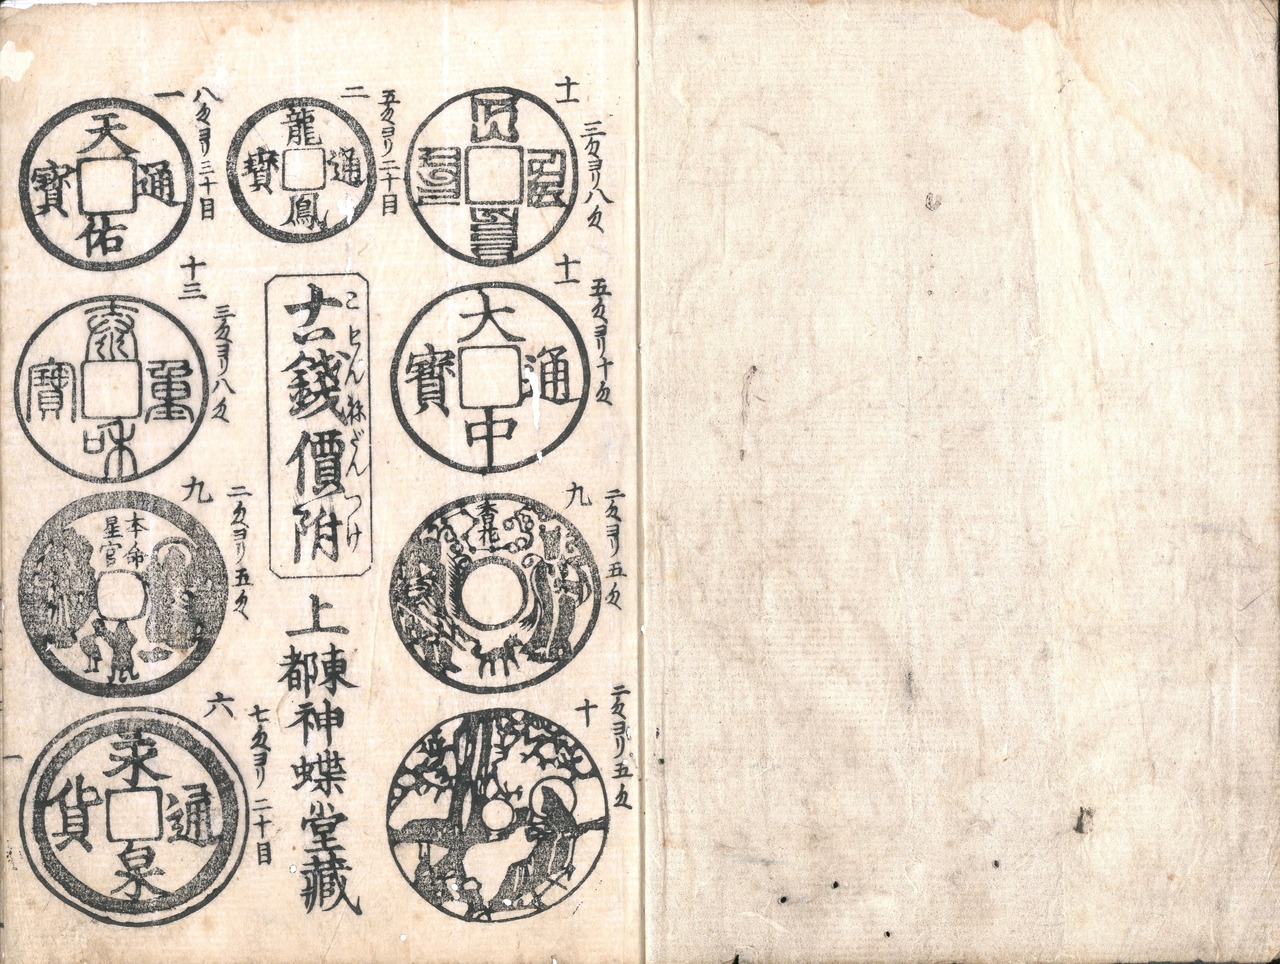 十一
三匁ヨリ八匁
二
五匁ヨリ二十目
龍鳳通寳
一
八匁ヨリ三十目
天佑通寳
十一
五匁ヨリ十匁
大中通寳
十三
三匁ヨリ八匁
泰和重寳
古錢價附
こせんねだんつけ
九
二匁ヨリ五匁
九
二匁ヨリ五匁
本命
星官
十
二匁ヨリ五匁
六
七匁ヨリ二十目
永泉通貨
上
東都神蝶堂藏